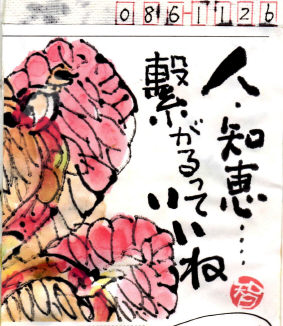 0861126
人・知恵……
繋がるって
いいね